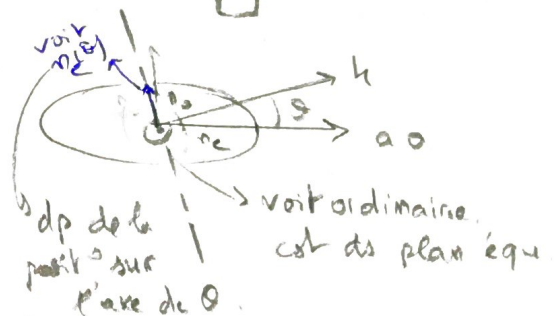 voit
n_e(θ)
k
n_o
θ
n_e
a o
dp de la
posit° sur
l'axe de θ.
voit ordinaire.
cst ds plan équ